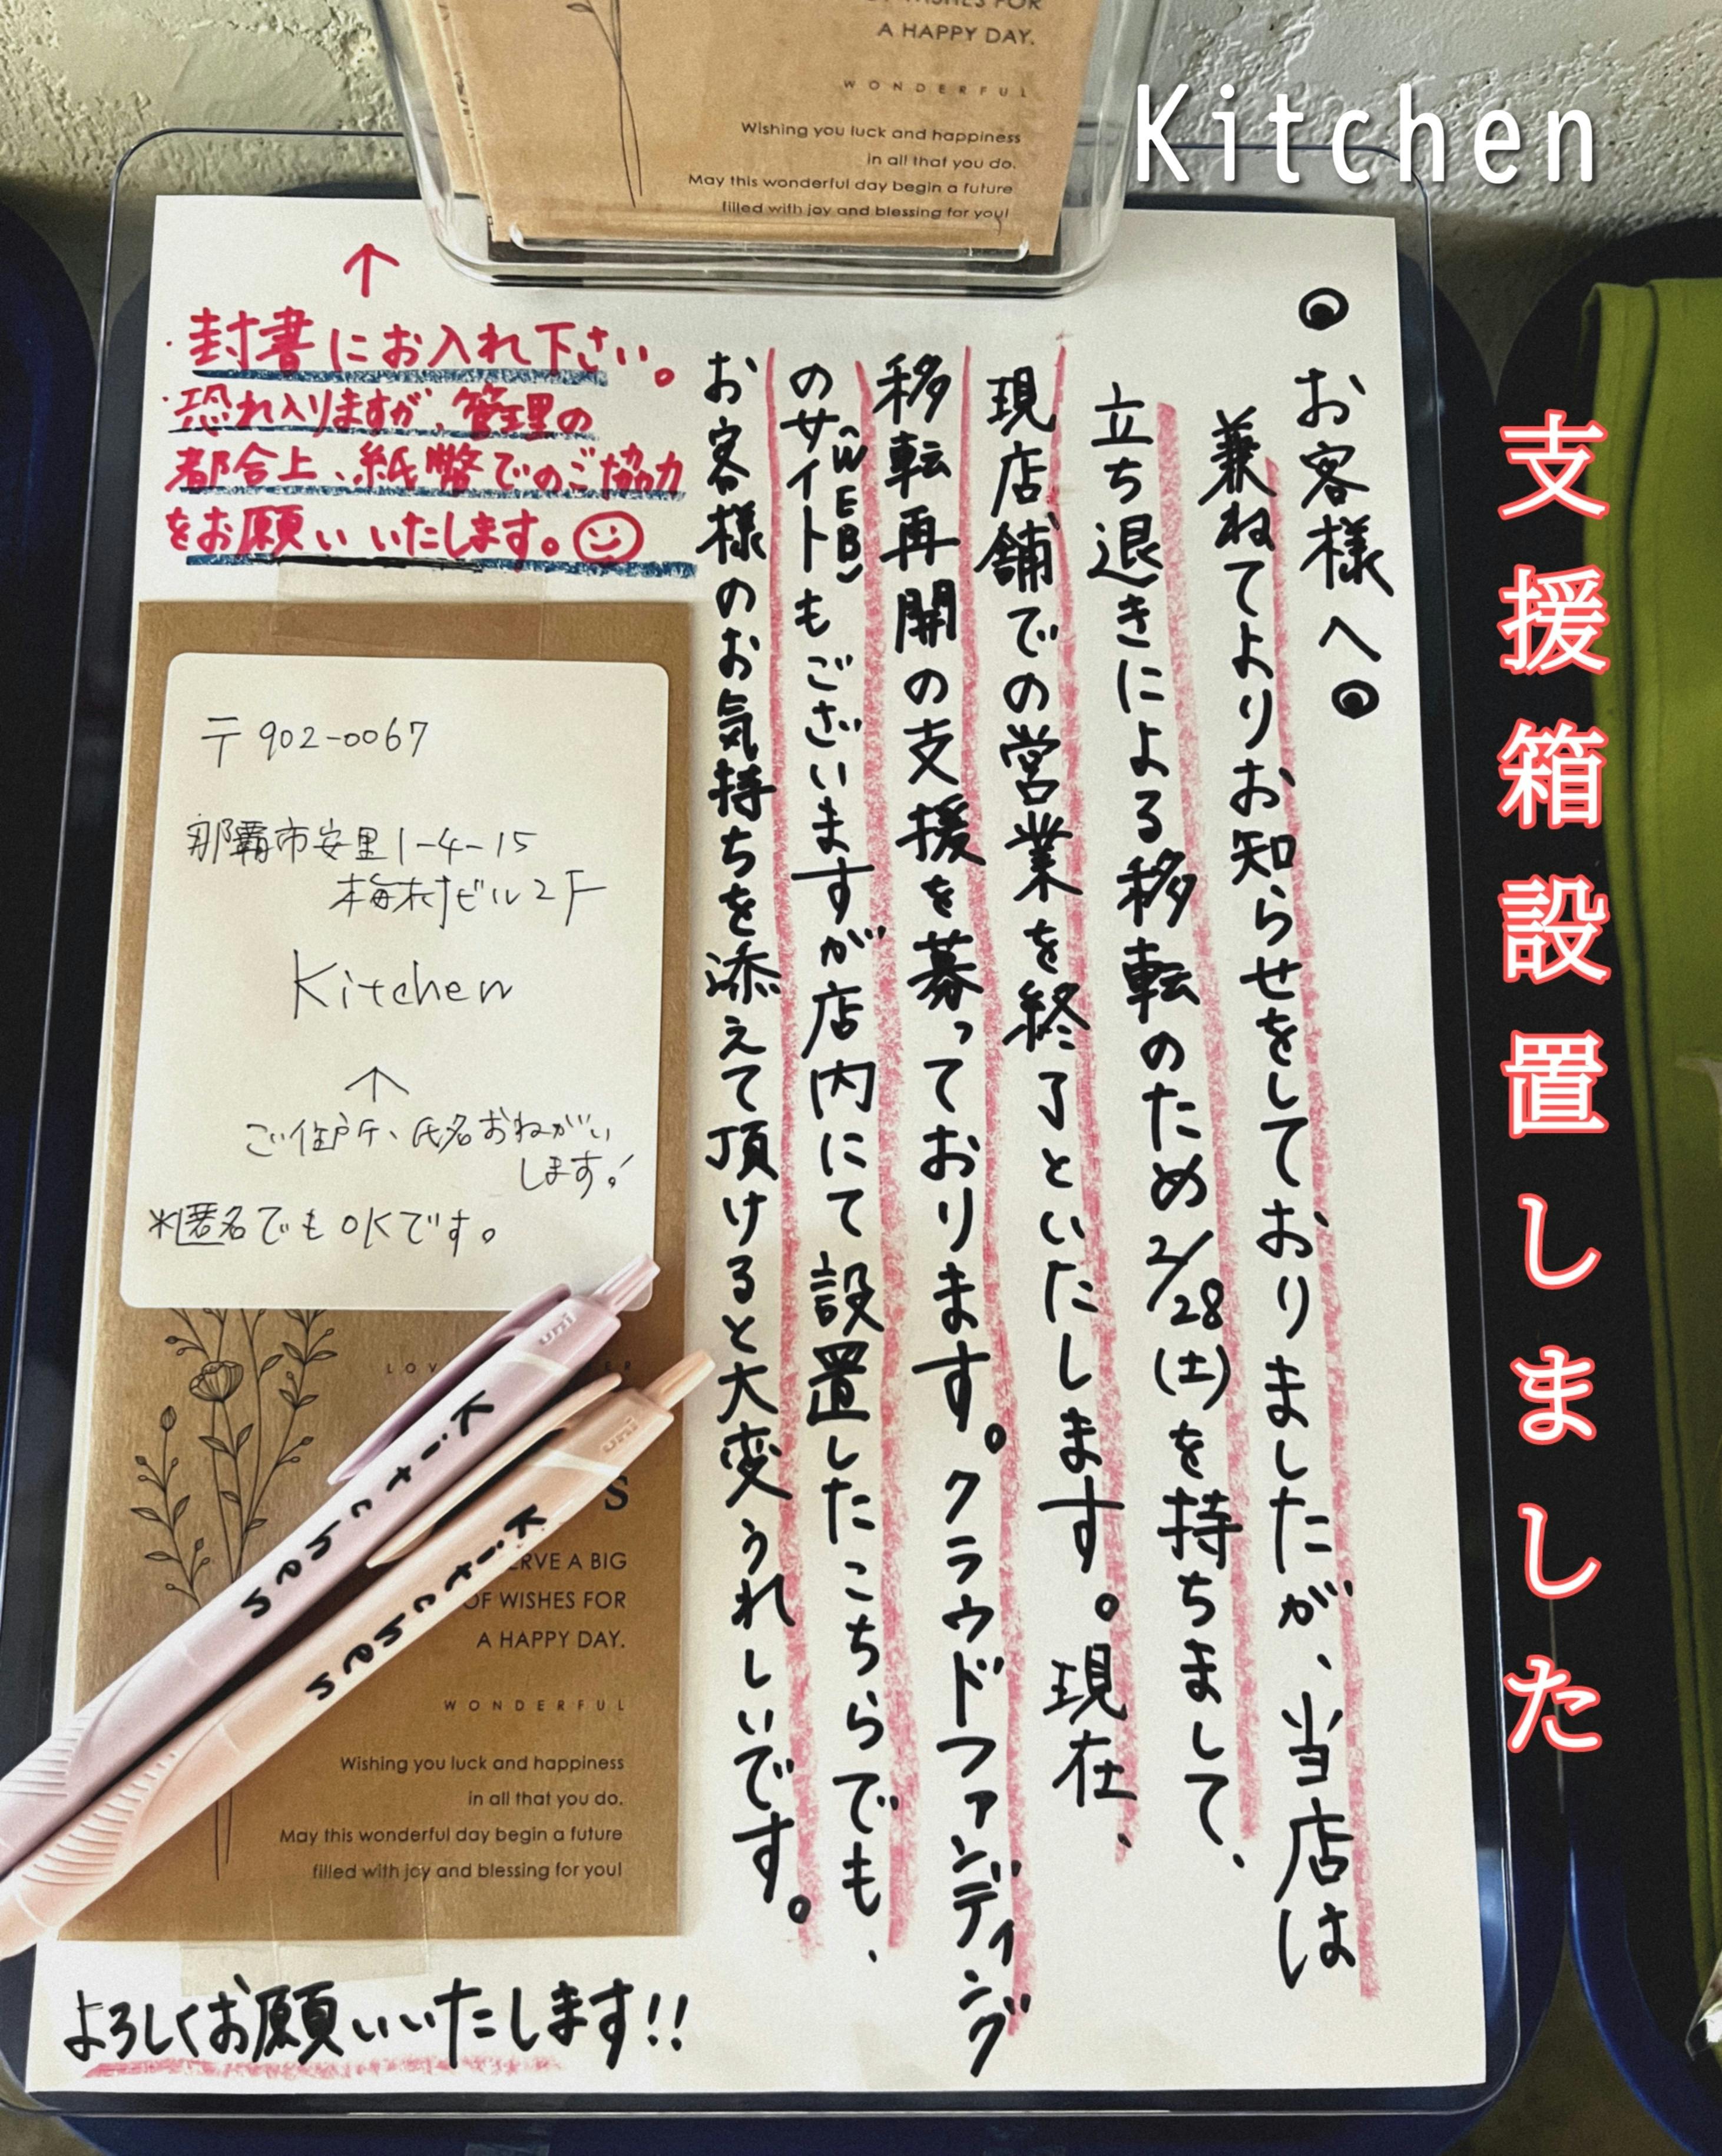 Kitchen
支援箱設置しました
A HAPPY DAY.
WONDERFUL
Wishing you luck and happiness
in all that you do.
May this wonderful day begin a future
filled with joy and blessing for you!
◎お客様へ◎
兼ねてよりお知らせをしておりましたが、当店は
立ち退きによる移転のため2/28(土)を持ちまして、
現店舗での営業を終了といたします。現在、
移転再開の支援を募っております。クラウドファンディング
のサイト(WEB)もございますが店内にて設置したこちらでも、
お客様のお気持ちを添えて頂けると大変うれしいです。
↑
・封書にお入れ下さい。
・恐れ入りますが、管理の
都合上、紙幣でのご協力
をお願いいたします。☺
〒902-0067
那覇市安里1-4-15
梅村ビル2F
Kitchen
↑
ご住所、氏名おねがい
します!
※匿名でもOKです。
uni
Kitchen
uni
Kitchen
A BIG
OF WISHES FOR
A HAPPY DAY.
WONDERFUL
Wishing you luck and happiness
in all that you do.
May this wonderful day begin a future
filled with joy and blessing for you!
よろしくお願いいたします!!